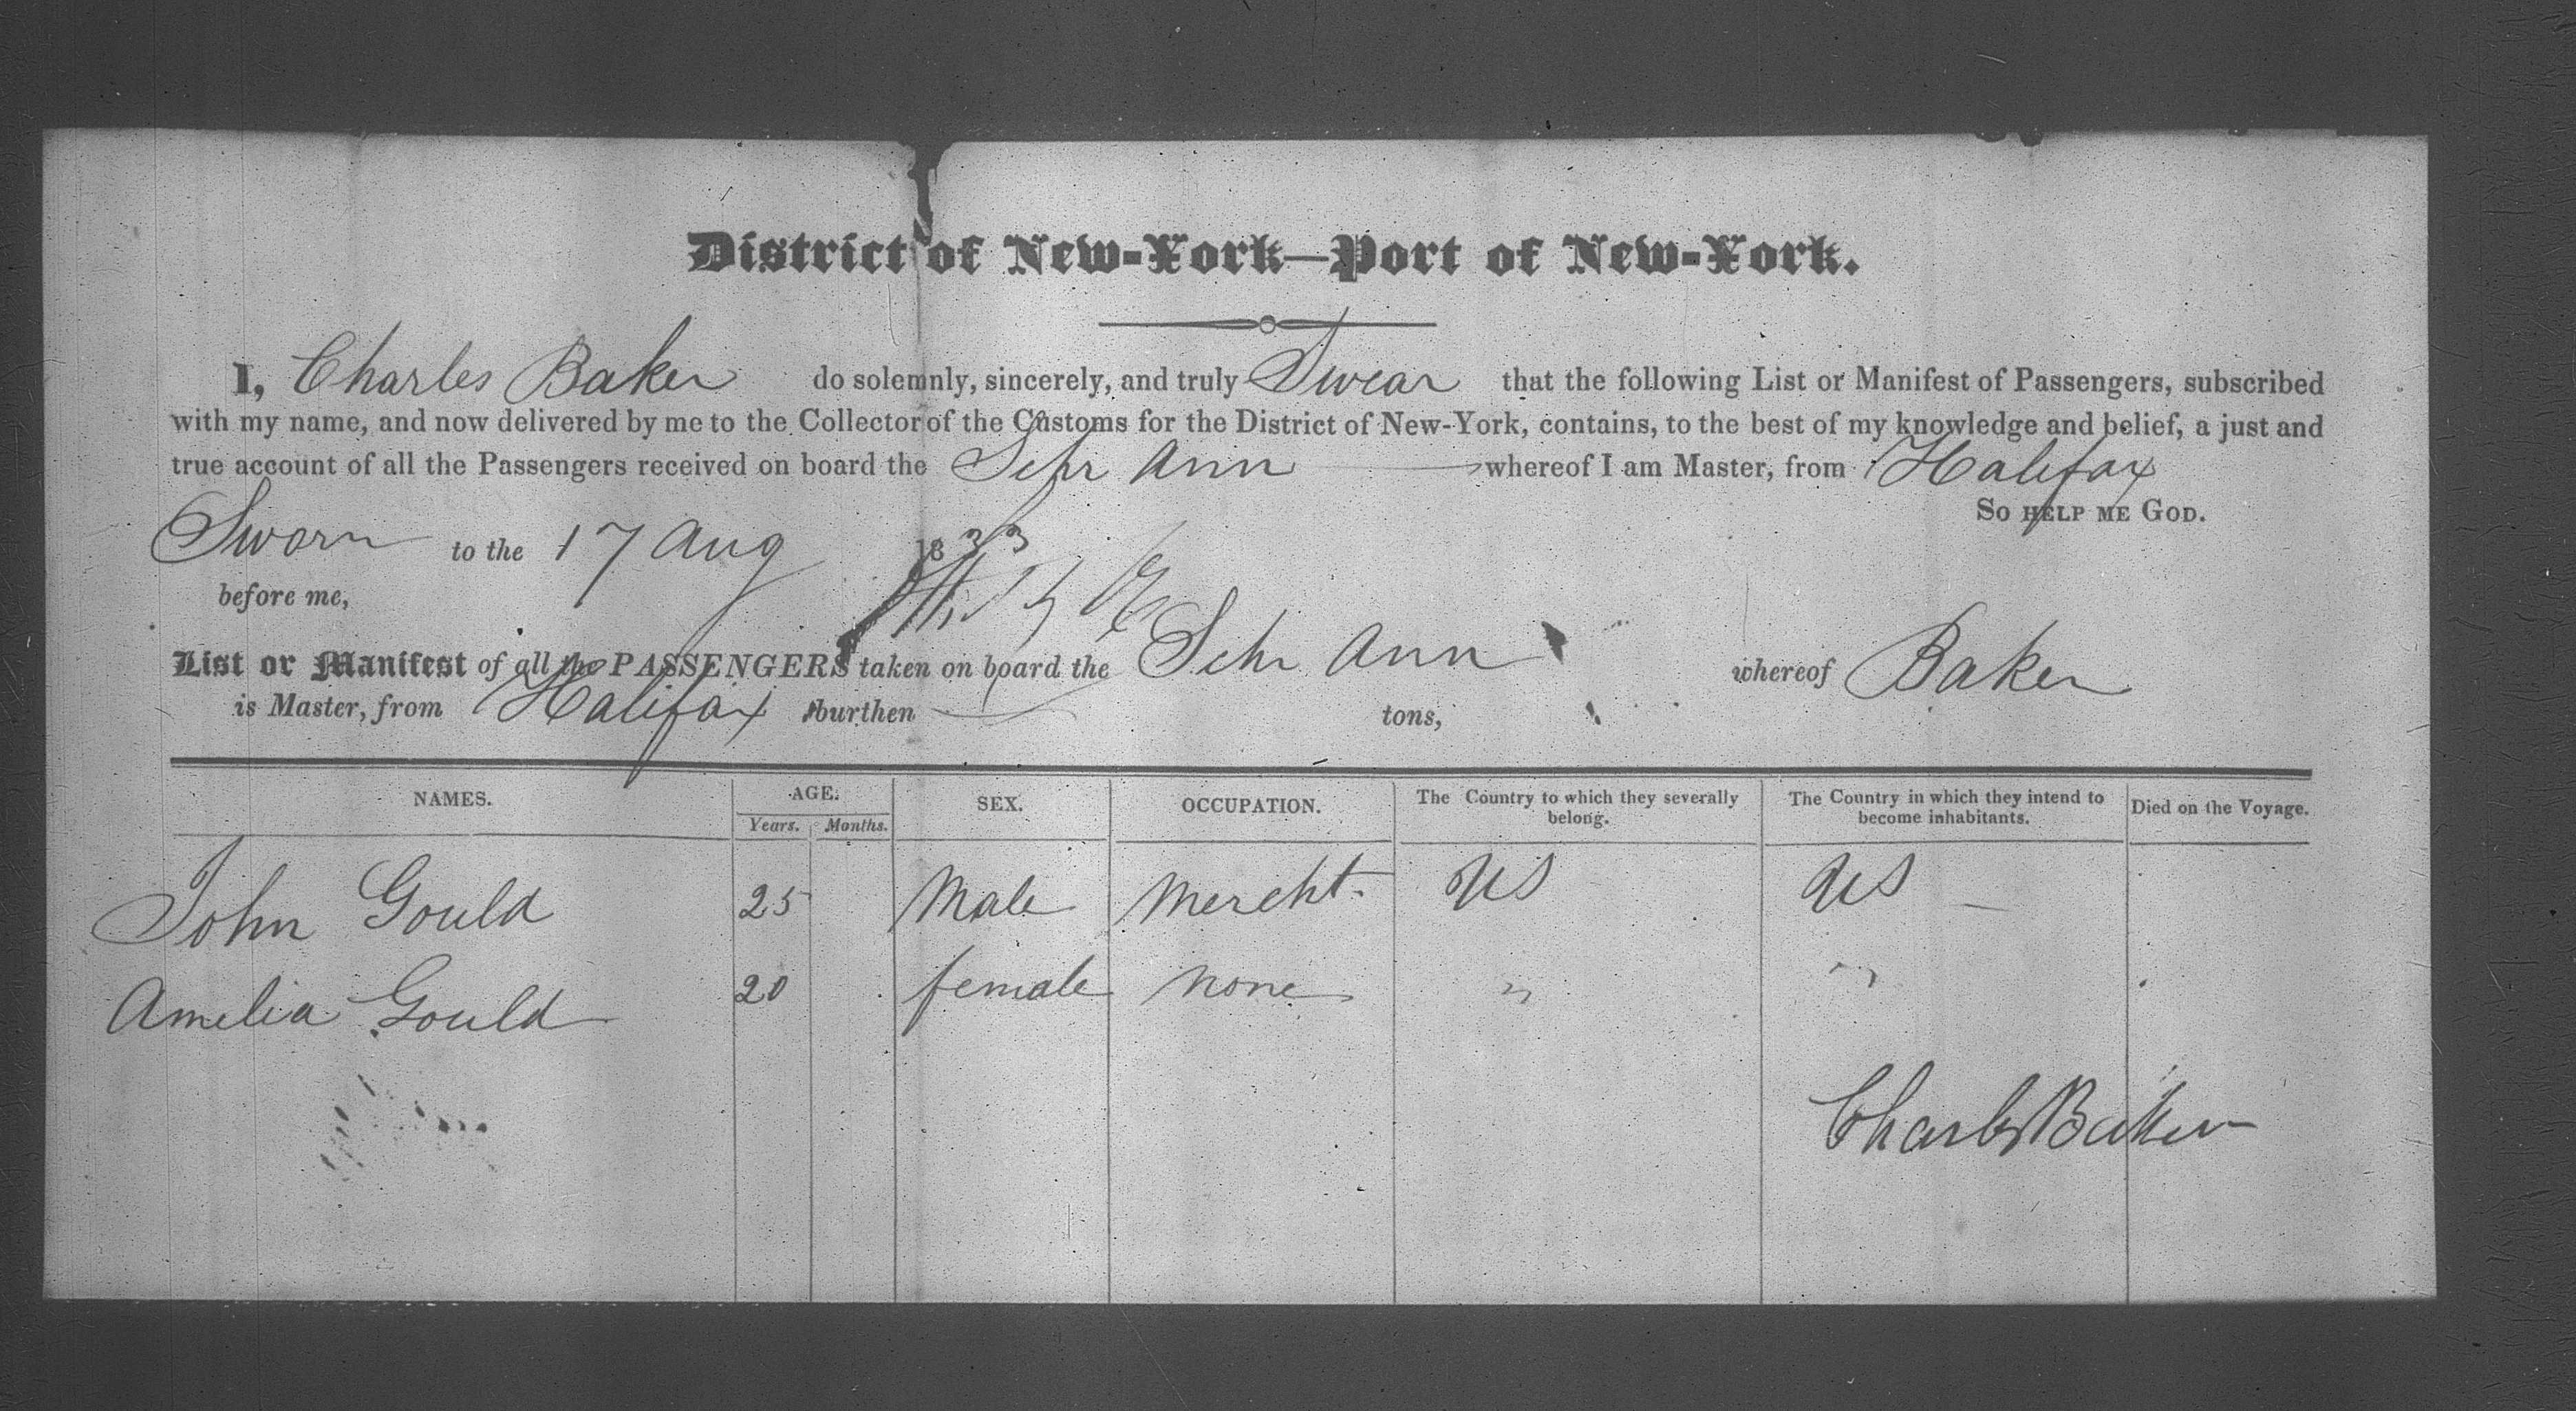 District of New-York—Port of New-York.
I, Charles Baker do solemnly, sincerely, and truly Swear that the following List or Manifest of Passengers, subscribed
with my name, and now delivered by me to the Collector of the Customs for the District of New-York, contains, to the best of my knowledge and belief, a just and
true account of all the Passengers received on board the Schr Ann whereof I am Master, from Halifax
So help me God.
Sworn to the 17 Aug 1833
before me,
List or Manifest of all the PASSENGERS taken on board the Schr Ann whereof Baker
is Master, from Halifax burthen tons,
NAMES. AGE. SEX. OCCUPATION. The Country to which they severally belong. The Country in which they intend to become inhabitants. Died on the Voyage.
Years. Months.
John Gould 25 Male Mercht. US US —
Amelia Gould 20 female none " "
Charles Baker